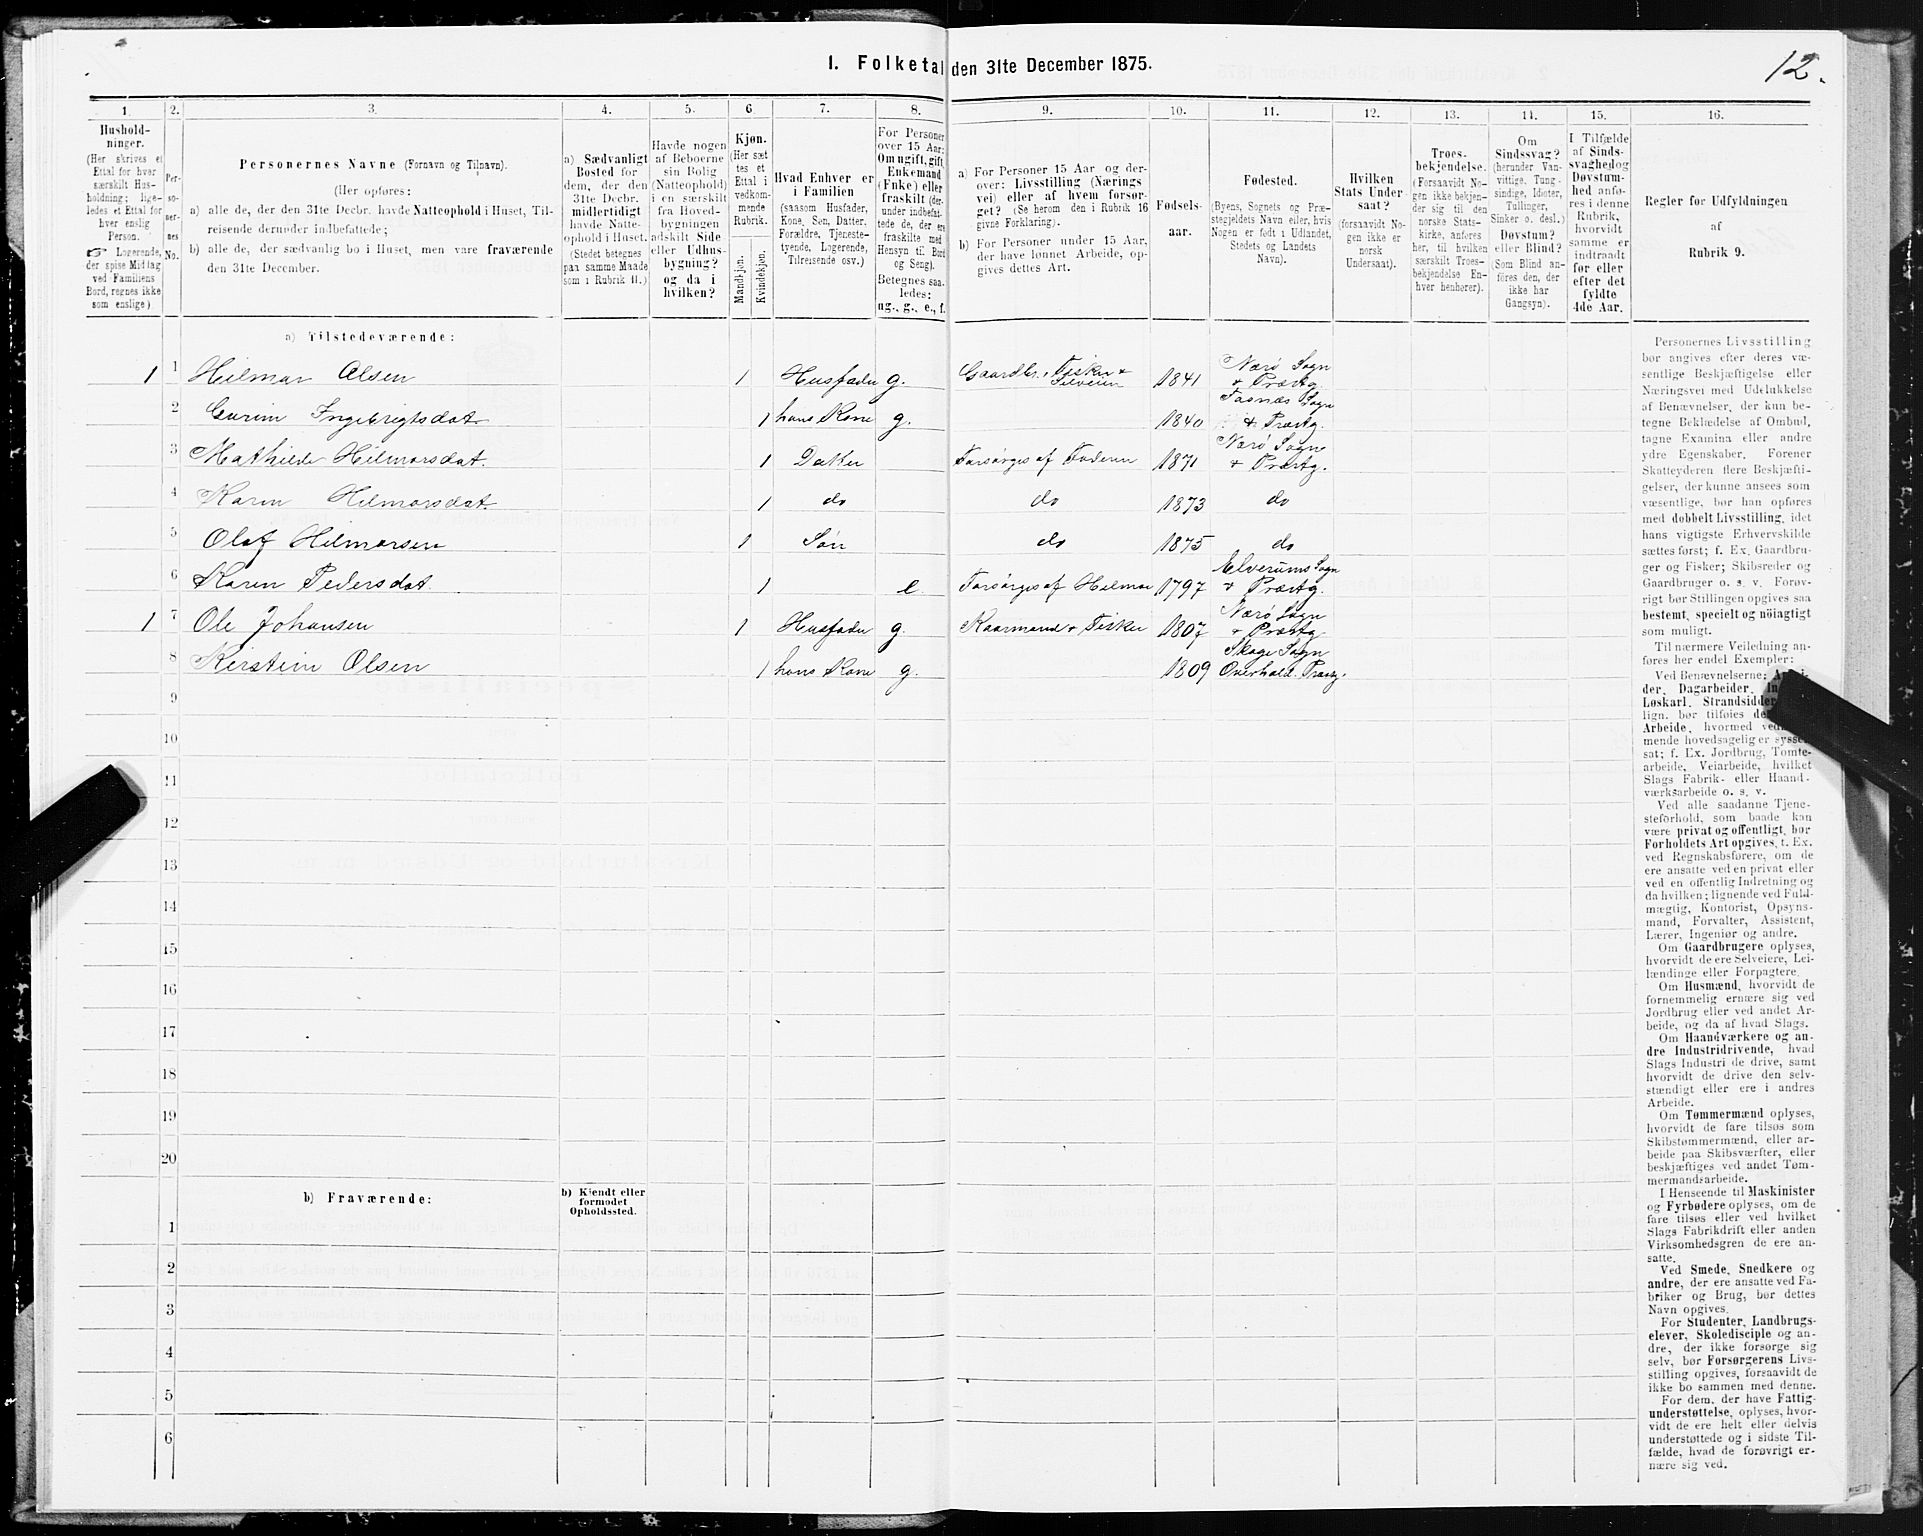 1. Folketal den 31te December 1875.
12.
1.
2.
3.
4.
5.
6
7.
8.
9.
10.
11.
12.
13.
14.
15.
16.
Hushold-
ninger.
(Her skrives et
Ettal for hver
særskilt Hus-
holdning; lige-
ledes et Ettal for
hver enslig
Person.
☞ Logerende,
der spise Middag
ved Familiens
Bord, regnes ikke
som enslige)
Per-
so-
ner-
nes
No.
Personernes Navne (Fornavn og Tilnavn).
(Her opføres:
a) alle de, der den 31te Decbr. havde Natteophold i Huset, Til-
reisende derunder indbefattede;
b) alle de, der sædvanlig bo i Huset, men vare fraværende
den 31te December.
a) Sædvanligt
Bosted for
dem, der den
31te Decbr.
midlertidigt
havde Natte-
ophold i Huset.
(Stedet betegnes
paa samme Maade
som i Rubrik 11.)
Havde nogen
af Beboerne
sin Bolig
(Natteophold)
i en særskilt
fra Hoved-
bygningen
adskilt Side
eller Udhus-
bygning?
og da i
hvilken?
Kjøn.
(Her sæt-
tes et
Ettal i
vedkom-
mende
Rubrik.
Mandkjøn.
Kvindekjøn.
Hvad Enhver er
i Familien
(saasom Husfader,
Kone, Søn, Datter,
Forældre, Tjeneste-
tyende, Logerende,
Tilreisende osv.)
For Personer
over 15 Aar:
Om ugift, gift,
Enkemand
(Enke) eller
fraskilt (der-
under indbefat-
tede de, der ere
fraskilte med
Hensyn til Bord
og Seng).
Betegnes saa-
ledes:
ug., g., e., f.
a) For Personer 15 Aar og der-
over: Livsstilling (Nærings
vei) eller af hvem forsør-
get? (Se herom den i Rubrik 16
givne Forklaring).
b) For Personer under 15 Aar,
der have lønnet Arbeide, op-
gives dettes Art.
Fødsels-
aar.
Fødested.
(Byens, Sognets og Præ-
stegjeldets Navn eller, hvis
Nogen er født i Udlandet,
Stedets og Landets
Navn).
Hvilken
Stats Under-
saat?
(forsaavidt No-
gen ikke er
norsk
Undersaat).
Troes-
bekjendelse.
(Forsaavidt No-
gen ikke bekjen-
der sig til den
norske Stats-
kirke, anføres
her, til hvilken
særskilt Troes-
bekjendelse En-
hver henhører).
Om
Sindssvag?
(herunder Van-
vittige, Tung-
sindige, Idioter,
Tullinger,
Sinker o. desl.)
Døvstum?
eller Blind?
(Som Blind an-
føres den, der
ikke har
Gangsyn).
I Tilfælde
af Sinds-
svaghed og
Døvstum-
hed anfø-
res i denne
Rubrik,
hvorvidt
samme er
indtraadt
før eller
efter det
fyldte
4de Aar.
Regler for Udfyldningen
af
Rubrik 9.
a) Tilstedeværende:
1 1 Hilmar Olsen 1 Husfader g. Gaardbr., Fisker + Selveier 1841 Nærø Sogn + Præstg.
2 Gurine Ingebrigtsdat 1 hans Kone g. 1840 Fosnæs Sogn + Præstg.
3 Mathilde Hilmarsdat. 1 Datter Forsørges af Faderen 1871 Nærø Sogn + Præstg.
4 Karen Hilmarsdat. 1 do do 1873 do
5 Olaf Hilmarsen 1 Søn do 1875 do
6 Karen Pedersdat. 1 e. Forsørges af Hilmar 1797 Elverums Sogn + Præstg.
1 7 Ole Johansen 1 Husfader g. Kaarmand + Fisker 1807 Nærø Sogn + Præstg
8 Kirstein Olsen 1 hans Kone g. 1809 Skage Sogn Overhald. Præstg.
9
10
11
12
13
14
15
16
17
18
19
20
b) Fraværende:
b) Kjendt eller
formodet
Opholdssted.
1
2
3
4
5
6
Personernes Livsstilling
bør angives efter deres væ-
sentlige Beskjæftigelse eller
Næringsvei med Udelukkelse
af Benævnelser, der kun be-
tegne Beklædelse af Ombud,
tagne Examina eller andre
ydre Egenskaber. Forener
Skatteyderen flere Beskjæfti-
gelser, der kunne ansees som
væsentlige, bør han opføres
med dobbelt Livsstilling, idet
hans vigtigste Erhvervskilde
sættes først; f. Ex. Gaardbru-
ger og Fisker; Skibsreder og
Gaardbruger o. s. v. Forøv-
rigt bør Stillingen opgives saa
bestemt, specielt og nöiagtigt
som muligt.
Til nærmere Veiledning an-
føres her endel Exempler:
Ved Benævnelserne:
der, Dagarbeider,
Løskarl, Strandsidder
lign. bør tilføies
Arbeide, hvormed
mende hovedsagelig er syssel-
sat; f. Ex. Jordbrug, Tomte-
arbeide, Veiarbeide, hvilket
Slags Fabrik- eller Haand-
værksarbeide o. s. v.
Ved alle saadanne Tjene-
steforhold, som baade kan
være privat og offentligt, bør
Forholdets Art opgives, f. Ex.
ved Regnskabsførere, om de
ere ansatte ved en privat eller
ved en offentlig Indretning og
da hvilken; lignende ved Fuld-
mægtig, Kontorist, Opsyns-
mand, Forvalter, Assistent,
Lærer, Ingeniør og andre.
Om Gaardbrugere oplyses,
hvorvidt de ere Selveiere, Lei-
lændinge eller Forpagtere.
Om Husmænd, hvorvidt de
fornemmelig ernære sig ved
Jordbrug eller ved andet Ar-
beide, og da af hvad Slags.
Om Haandværkere og an-
dre Industridrivende, hvad
Slags Industri de drive, samt
hvorvidt de drive den selv-
stændigt eller ere i andres
Arbeide.
Om Tømmermænd oplyses,
hvorvidt de fare tilsøs som
Skibstømmermænd, eller ar-
beide paa Skibsværfter, eller
beskjæftiges ved andet Tøm-
mermandsarbeide.
I Henseende til Maskinister
og Fyrbødere oplyses, om de
fare tilsøs eller ved hvilket
Slags Fabrikdrift eller anden
Virksomhedsgren de ere an-
satte.
Ved Smede, Snedkere og
andre, der ere ansatte ved Fa-
briker og Brug, bør dettes
Navn opgives.
For Studenter, Landbrugs-
elever, Skoledisciple og an-
dre, der ikke forsørge sig
selv, bør Forsørgerens Livs-
stilling opgives, forsaavidt de
ikke bo sammen med denne.
For dem, der have Fattig-
understøttelse, oplyses, hvor-
vidt de ere helt eller delvis
understøttede og i sidste Til-
fælde, hvad de forøvrigt er-
nære sig ved.